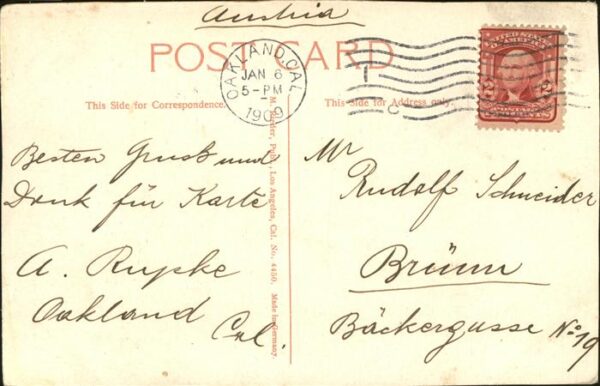 Austria
POST CARD
OAKLAND, CAL.
JAN 6
5-PM
1909
This Side for Correspondence.
This Side for Address only.
M. Rieder, Publ., Los Angeles, Cal. No. 4450. Made in Germany.
Besten Gruss und
Dank für Karte
A. Rypke
Oakland
Cal.
Mr
Rudolf Schneider
Brünn
Bäckergasse No 19
UNITED STATES
OF AMERICA
2 2